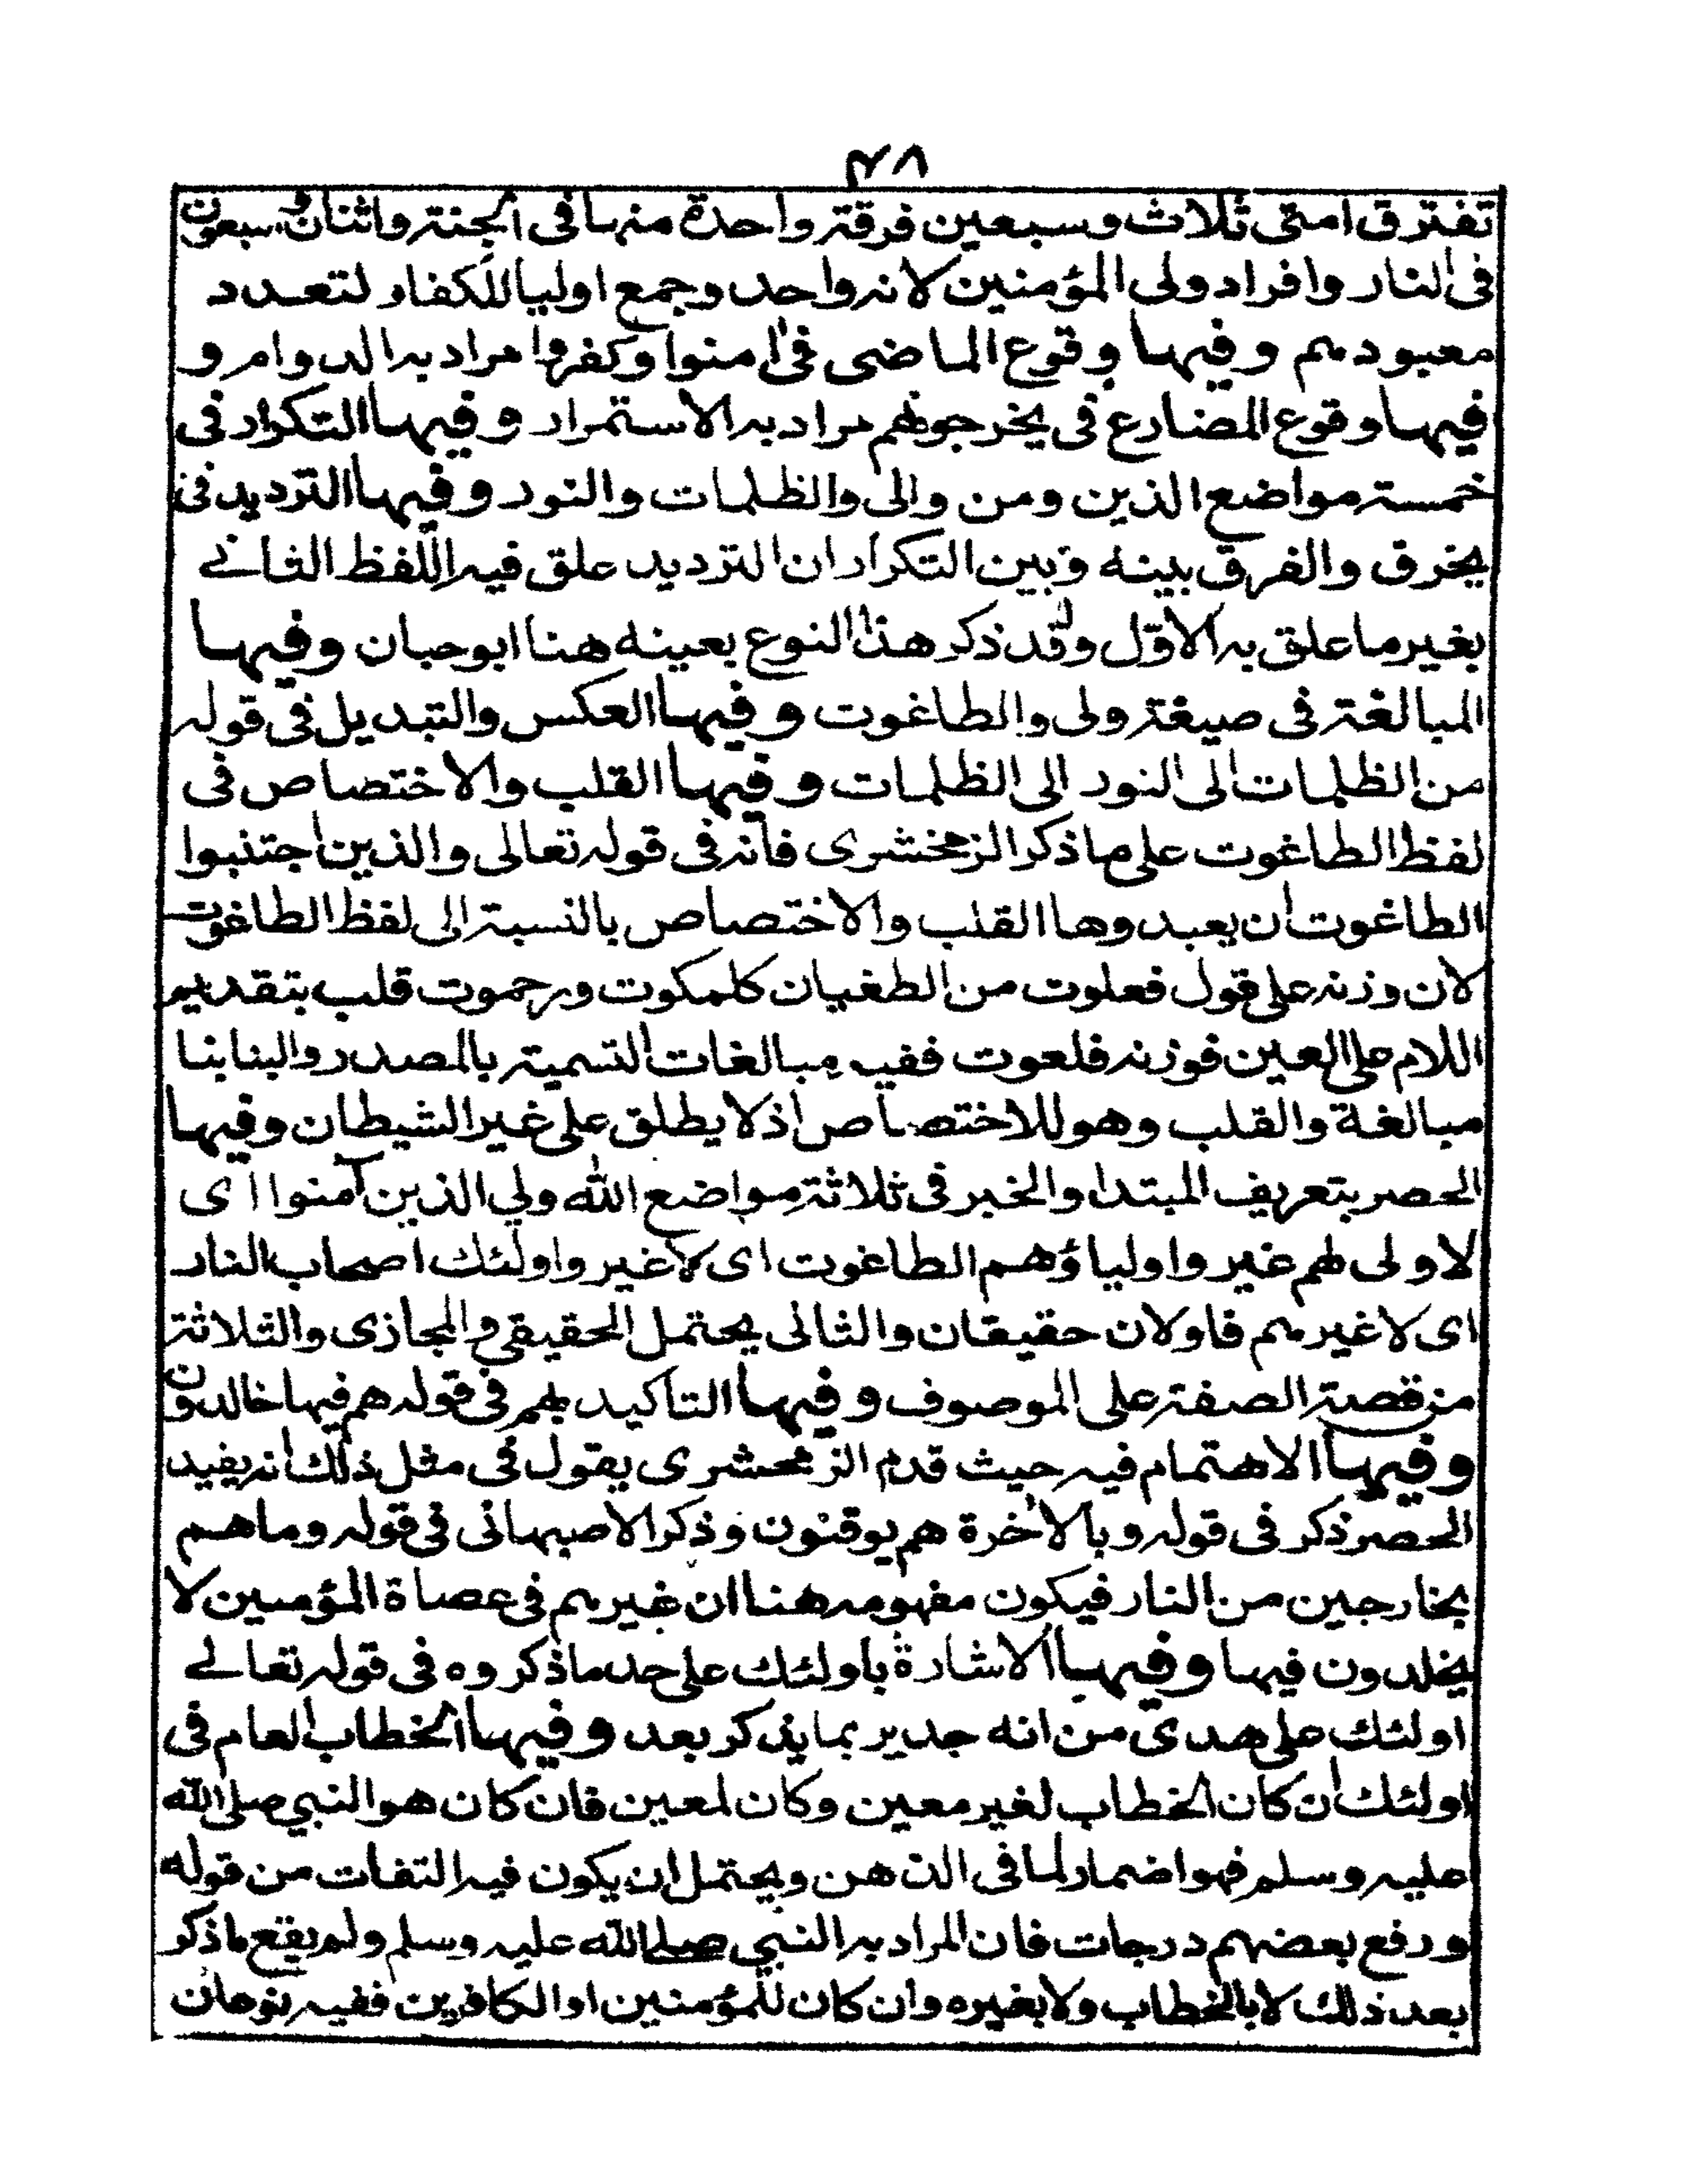 ٣٨
تفترق امتى ثلاث وسبعين فرقة واحدة منها فى الجنة واثنان وسبعون
فى النار وافراد ولى المؤمنين لانه واحد وجمع اولياالكفار لتعدد
معبودهم وفيها وقوع الماضى فى امنوا وكفروا مراد به الدوام و
فيها وقوع المضارع فى يخرجونهم مراد به الاستمرار وفيها التكرار فى
خمسة مواضع الذين ومن والى والظلمات والنور وفيها الترديد فى
يخرق والفرق بينه وبين التكرار ان الترديد علق فيه اللفظ الثانے
بغير ما علق به الاوّل وقد ذكر هذا النوع بعينه هنا ابو حبان وفيها
المبالغة فى صيغة ولى والطاغوت وفيها العكس والتبديل فى قوله
من الظلمات الى النور الى الظلمات وفيها القلب والاختصاص فى
لفظ الطاغوت على ما ذكر الزمخشرى فانه فى قوله تعالى والذين اجتنبوا
الطاغوت ان يعبدوها القلب والاختصاص بالنسبة الى لفظ الطاغوت
لان وزنه على قول فعلوت من الطغيان كلمكوت ورحموت قلب بتقديم
اللام على العين فوزنه فلعوت ففيه مبالغات التسمية بالمصدر والبنا بنا
مبالغة والقلب وهو للاختصاص اذ لا يطلق على غير الشيطان وفيها
الحصر بتعريف المبتدا والخبر فى ثلاثة مواضع الله ولي الذين آمنوا اى
لا ولى لهم غير واولياؤهم الطاغوت اى لا غير واولئك اصحاب النار
اى لا غيرهم فاولان حقيقان والثالى يحتمل الحقيقي والمجازى والثلاثة
من قصة الصفة على الموصوف وفيها التاكيد بهم فى قوله هم فيها خالدون
وفيها الاهتمام فيه حيث قدم الزمحشرى يقول فى مثل ذلك انه يفيد
الحصر ذكر فى قوله وبالاخرة هم يوقنون وذكر الاصبهانى فى قوله وما هم
بخارجين من النار فيكون مفهومه هنا ان غيرهم فى عصاة المؤمسين لا
يخلدون فيها وفيها الاشارة باولئك على حد ما ذكروه فى قوله تعالے
اولئك على هدى من انه جدير بما يذكر بعد وفيها الخطاب العام فى
اولئك ان كان الخطاب لغير معين وكان لمعين فان كان هو النبي صلى الله
عليه وسلم فهو اضمار لما فى الذهن ويحتمل ان يكون فيه التفات من قوله
ورفع بعضهم درجات فان المراد به النبي صلے الله عليه وسلم ولم يقع ماذكر
بعد ذلك لا بالخطاب ولا بغيره وان كان للمؤمنين او الكافرين ففيه نوعان